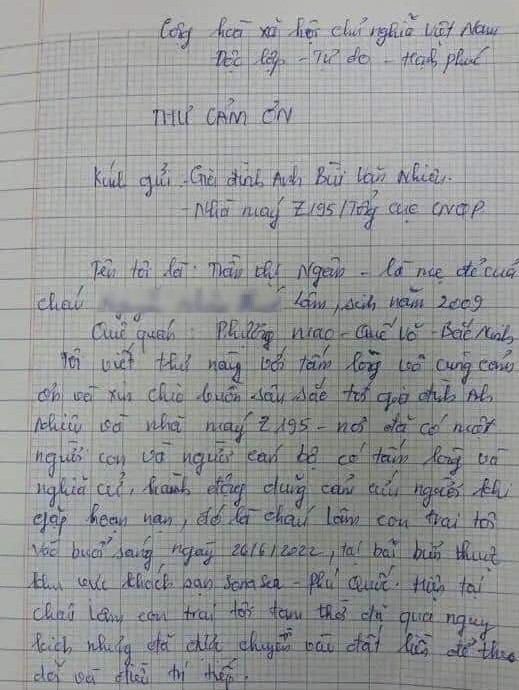 Cộng hoà xã hội chủ nghĩa Việt Nam
Độc lập - Tự do - Hạnh phúc
THƯ CẢM ƠN
Kính gửi - Gia đình Anh Bùi Văn Nhiên.
- Nhà máy Z195/Tổng cục CNQP
Tên tôi là: Trần thị Ngân - là mẹ đẻ của
cháu Lâm, sinh năm 2009
Quê quán: Phường mao - Quế Võ - Bắc Ninh
Tôi viết thư này với tấm lòng vô cùng cảm
ơn và xin chia buồn sâu sắc tới gia đình Anh
Nhiên và nhà máy Z195 - nơi đã có một
người con và người cán bộ có tấm lòng và
nghĩa cử, hành động dũng cảm cứu người khi
gặp hoạn nạn, đó là cháu Lâm con trai tôi
vào buổi sáng ngày 26/6/2022, tại bãi biển thuộc
khu vực khách sạn Sonasea - Phú Quốc. Hiện tại
cháu Lâm con trai tôi tạm thời đã qua nguy
kịch nhưng đã được chuyển vào đất liền để theo
dõi và điều trị tiếp.